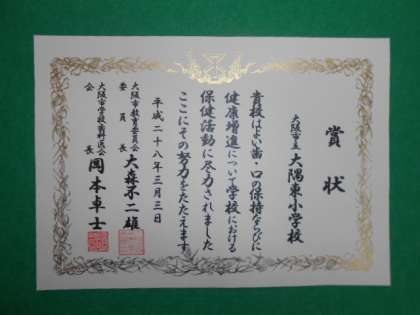 賞状
大阪市立 大隅東小学校
貴校はよい歯・口の保持ならびに
健康増進について学校における
保健活動に尽力されました
ここにその努力をたたえます
平成二十八年三月三日
大阪市教育委員会
委員長 大森不二雄
大阪市学校歯科医会
会長 岡本卓士